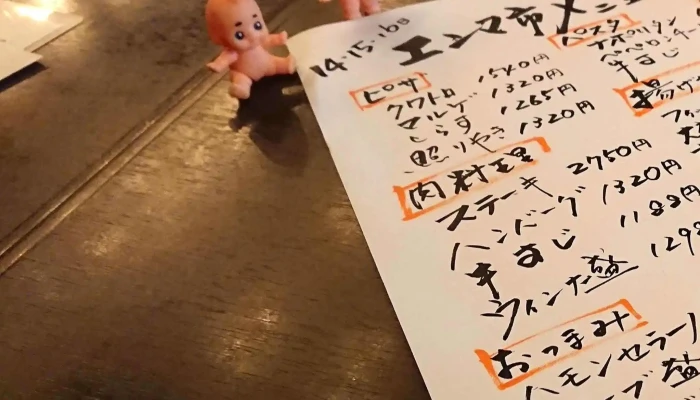 14・15・16日
エンマ市メニュ
ピザ
クワトロ 1540円
マルゲ 1320円
しらす 1265円
照りやき 1320円
肉料理
ステーキ 2750円
ハンバーグ 1320円
牛すじ 1188円
ウィンナー盛 129
おつまみ
ハモンセラー
盛
パスタ
ナポリタン
ペペロンチ
牛すじ
揚げ
フィ